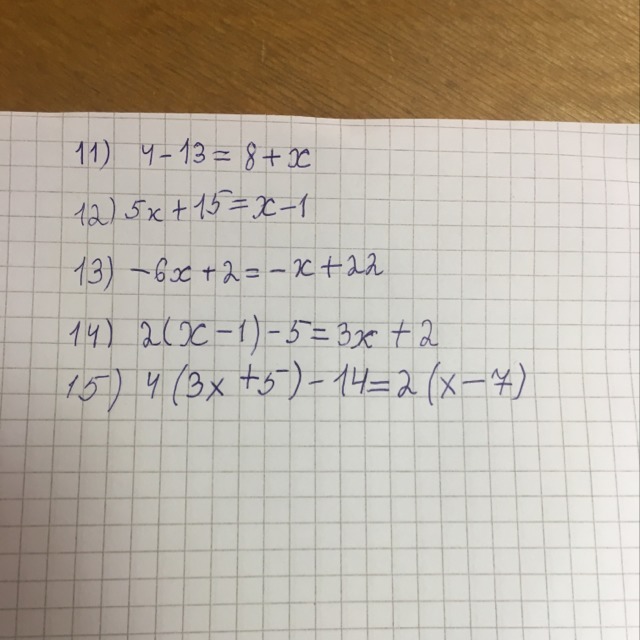 11) 4-13=8+x
12) 5x+15=x-1
13) -6x+2=-x+22
14) 2(x-1)-5=3x+2
15) 4(3x+5)-14=2(x-7)